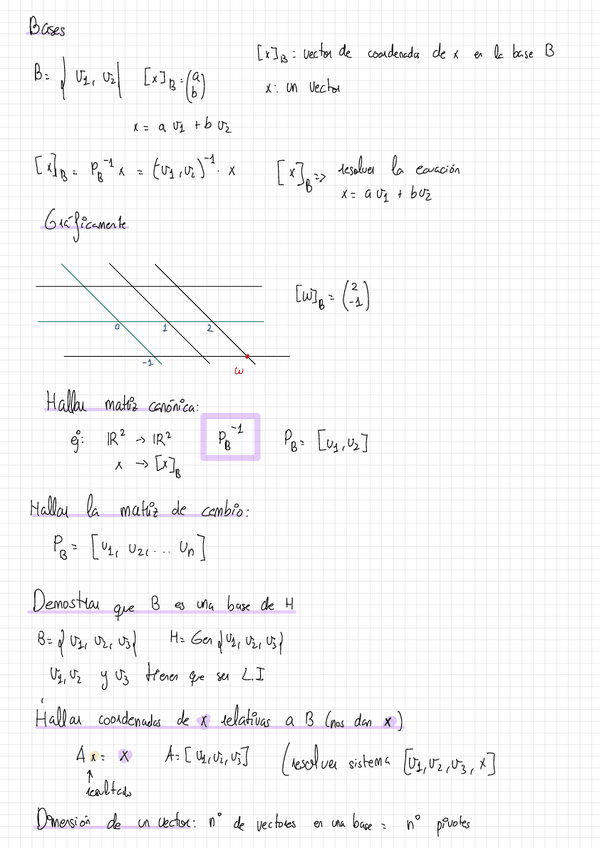 Bases
B= { v1, v2 } [x]B = (a b) [x]B : vector de coordenada de x en la base B
x: un vector
x = a v1 + b v2
[x]B = PB^-1 x = (v1, v2)^-1 · x [x]B => resolver la ecuación
x = a v1 + b v2
Gráficamente
[w]B = (2 -1)
0 1 2
-1
w
Hallar matriz canónica:
ej: IR² → IR² PB^-1 PB = [v1, v2]
x → [x]B
Hallar la matriz de cambio:
PB = [v1, v2, ... vn]
Demostrar que B es una base de H
B = { v1, v2, v3 } H = Gen { v1, v2, v3 }
v1, v2 y v3 tienen que ser L.I
Hallar coordenadas de x relativas a B (nos dan x)
A x = x A = [v1, v2, v3] (resolver sistema [v1, v2, v3, x]
↑
resultado
Dimensión de un vector: nº de vectores en una base = nº pivotes